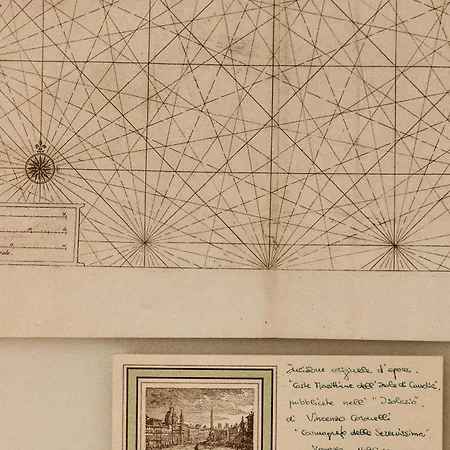 Incisione originale d'epoca.
"Coste Marittime dell'Isola di Candia",
pubblicate nell' "Isolario",
di Vincenzo Coronelli
"Cosmografo della Serenissima",
Venezia